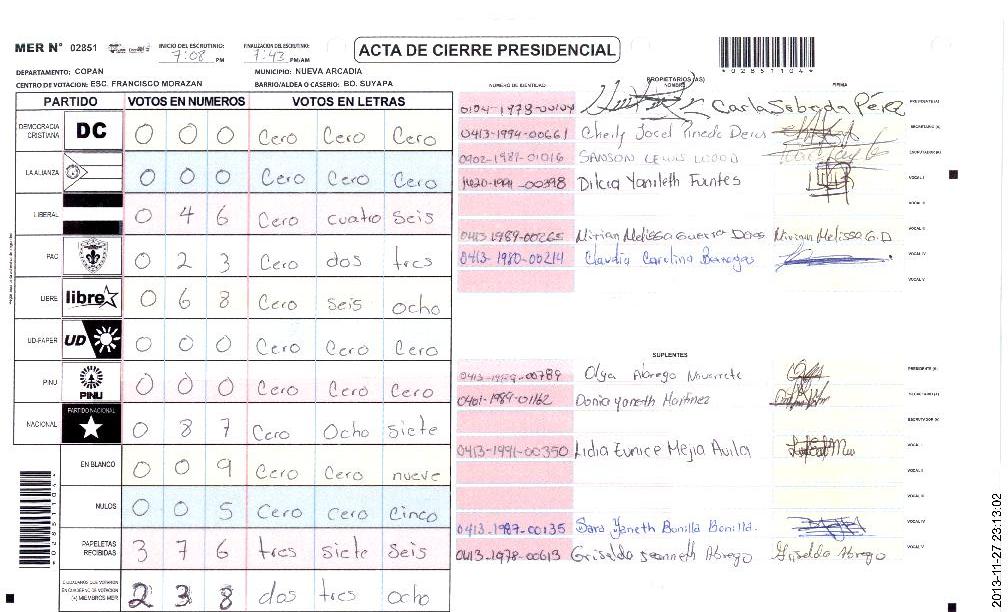 MER N° 02851
INICIO DEL ESCRUTINIO: 7:08 PM
FINALIZACION DEL ESCRUTINIO: 7:43 PM/AM
ACTA DE CIERRE PRESIDENCIAL
*02851104*
DEPARTAMENTO: COPÁN
MUNICIPIO: NUEVA ARCADIA
CENTRO DE VOTACION: ESC. FRANCISCO MORAZAN
BARRIO/ALDEA O CASERIO: BO. SUYAPA
PARTIDO VOTOS EN NUMEROS VOTOS EN LETRAS
DEMOCRACIA CRISTIANA DC 0 0 0 Cero Cero Cero
LA ALIANZA 0 0 0 Cero Cero Cero
LIBERAL 0 4 6 Cero cuatro seis
PAC 0 2 3 Cero dos tres
LIBRE libre 0 6 8 Cero seis ocho
UD-FAPER UD 0 0 0 Cero Cero Cero
PINU PINU 0 0 0 Cero Cero Cero
NACIONAL PARTIDO NACIONAL 0 8 7 Cero Ocho siete
EN BLANCO 0 0 9 Cero Cero nueve
NULOS 0 0 5 Cero cero cinco
PAPELETAS RECIBIDAS 3 7 6 tres siete seis
CIUDADANOS QUE VOTARON EN CUADERNO DE VOTACION (+) MIEMBROS MER 2 3 8 dos tres ocho
NUMERO DE IDENTIDAD: PROPIETARIOS (AS) NOMBRE FIRMA
Carla Sobeyda Pérez PRESIDENTE (A)
0413-1994-00661 SECRETARIO (A)
0902-1987-01016 SANSON LEWIS WOOD ESCRUTADOR (A)
-1991-00398 Dilcia Yamileth Fuentes VOCAL I
VOCAL II
0413-1989-00265 Mirian Melissa Guerra Mirian Melissa G.D VOCAL III
0413-1980-00214 Claudia Carolina Banegas VOCAL IV
VOCAL V
SUPLENTES
00789 Olga Abrego Navarrete PRESIDENTE (A)
0401-1989-01162 Dania Yaneth Martinez SECRETARIO (A)
ESCRUTADOR (A)
0413-1991-00350 Lidia Eunice Mejia Avila VOCAL I
VOCAL II
VOCAL III
0413-1987-00135 Sara Yaneth Bonilla Bonilla. VOCAL IV
0413-1978-00613 Griselda Jeanneth Abrego Griselda Abrego VOCAL V
*02851104*
2013-11-27 23:13:02